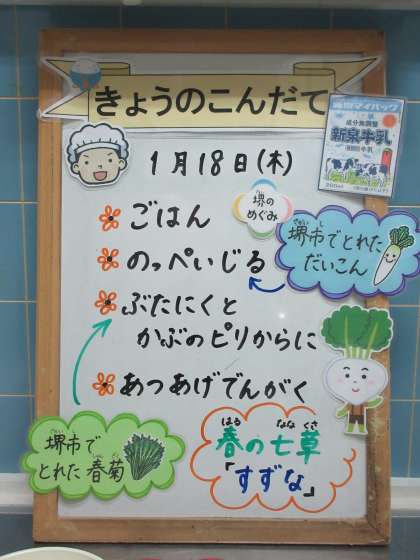 きょうのこんだて
1月18日(木)
成分無調整
新泉牛乳
ごはん
堺の
めぐみ
のっぺいじる
堺市でとれた
だいこん
ぶたにくと
かぶのピリからに
あつあげでんがく
堺市で
とれた春菊
春の七草
「すずな」
はる
なな
くさ